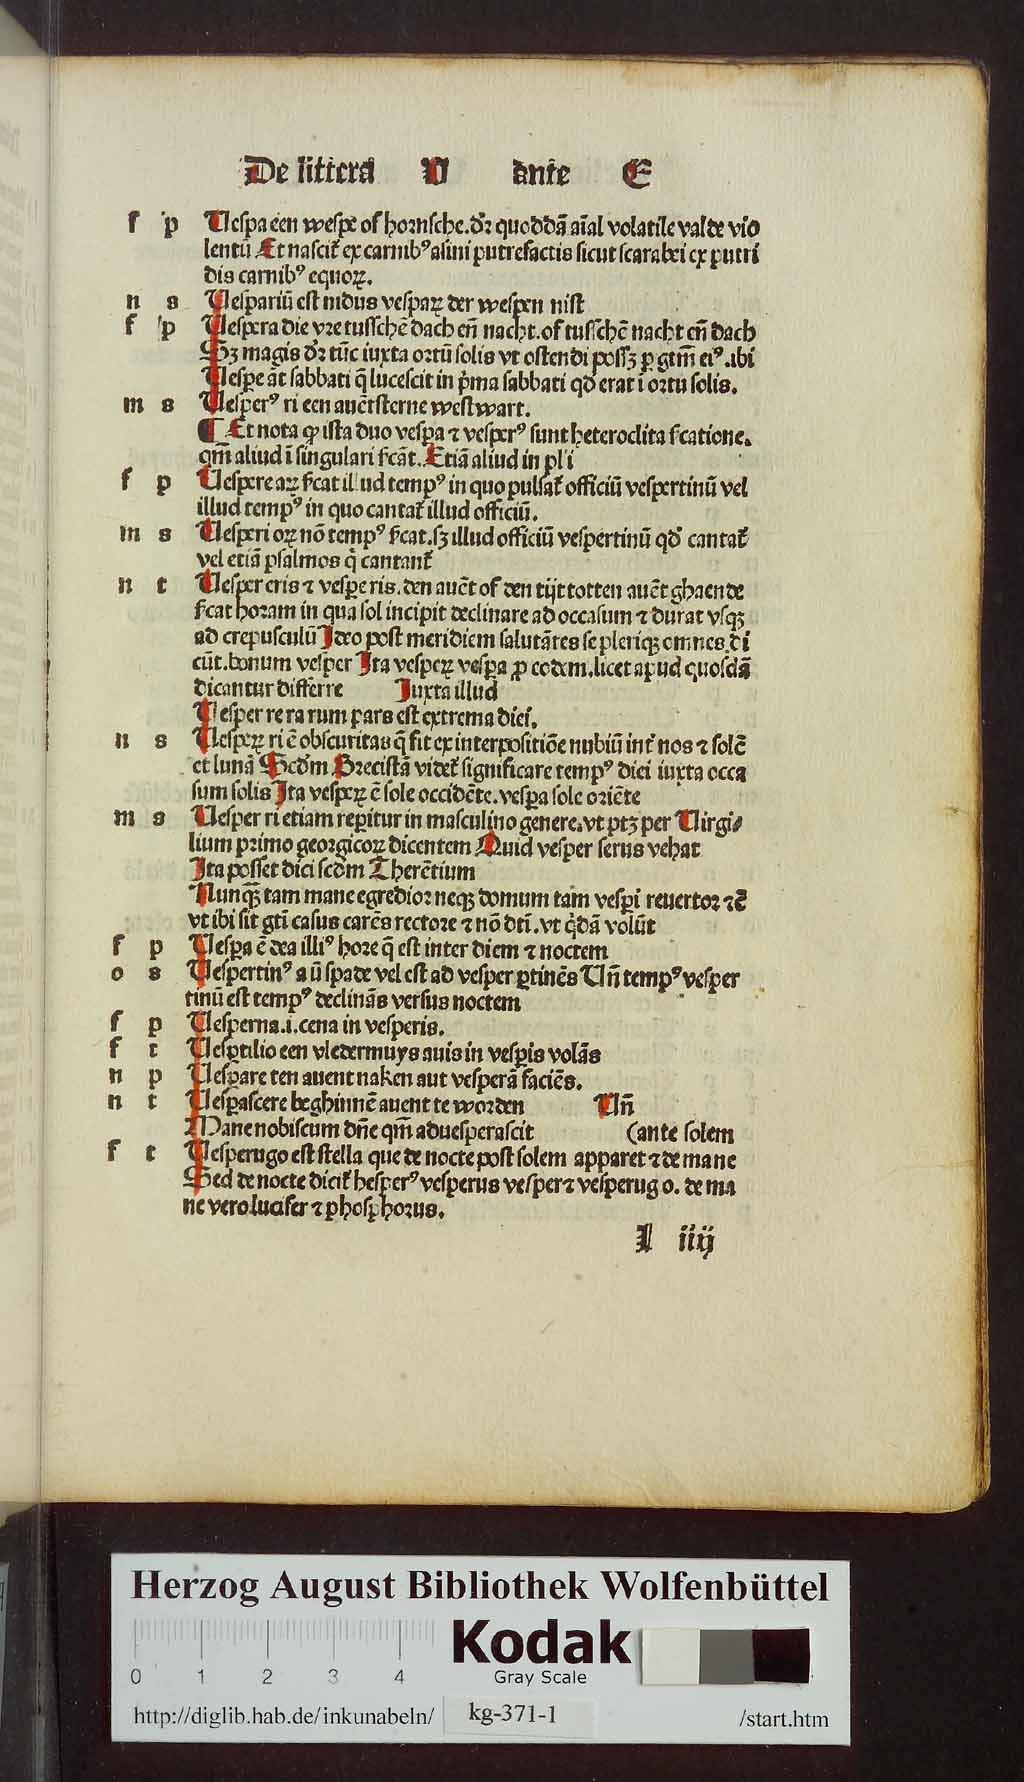 De litterā U ante E
f p Uespa een wespe of hornsche. dr̄ quoddā aīal volatile valde vio
lentū Et nascit᷑ ex carnibꝰ asini putrefactis sicut scarabei ex putri
dis carnibꝰ equoꝝ.
n s Uespariū est nidus vespaꝝ der wespen nist
f p Uespera die vre tusschē dach eñ nacht. of tusschē nacht eñ dach
Sꝫ magis dr̄ tūc iuxta ortū solis vt ostendi possꝫ ꝑ gtm̄ eiꝰ. ibi
Uespe āt sabbati q̄ lucescit in p̄ma sabbati qd̄ erat ī ortu solis.
m s Uesperꝰ ri een auētsterne westwart.
¶ Et nota ꝙ ista duo vespa ⁊ vesperꝰ sunt heteroclita sc̄atione.
qm̄ aliud ī singulari sc̄at. Etiā aliud in pl̄i
f p Uespere aꝝ sc̄at illud tempꝰ in quo pulsat᷑ officiū vespertinū vel
illud tempꝰ in quo cantat᷑ illud officiū.
m s Uesperi oꝝ nō tempꝰ sc̄at. sꝫ illud officiū vespertinū qd̄ cantat᷑
vel etiā psalmos q̄ cantant᷑
n t Uesper eris ⁊ vespe ris. den auēt of den tijt totten auēt ghaende
sc̄at horam in qua sol incipit declinare ad occasum ⁊ durat vsqꝫ
ad crepusculū Ideo post meridiem salutātes se pleriqꝫ omnes di
cūt. bonum vesper Ita vespeꝝ vespa ꝓ eodem. licet apud quosdā
dicantur differre Iuxta illud
Uesper rerarum pars est extrema diei.
n s Uespeꝝ ri ē obscuritas q̄ fit ex interpositiōe nubiū int᷑ nos ⁊ solē
et lunā Scd̄m Brecistā videt᷑ significare tempꝰ diei iuxta occa
sum solis Ita vespeꝝ ē sole occidēte. vespa sole oriēte
m s Uesper ri etiam repitur in masculino genere. vt ptꝫ per Uirgi⸗
lium primo georgicoꝝ dicentem Quid vesper serus vehat
Ita posset dici scd̄m Therētium
Nunqꝫ tam mane egredior neqꝫ domum tam vesperi reuertor ⁊c̄
vt ibi sit gtī casus carēs rectore ⁊ nō dtī. vt q̄dā volūt
f p Uespa ē dea illiꝰ hore q̄ est inter diem ⁊ noctem
o s Uespertinꝰ a ū spade vel est ad vesper ptinēs Uñ tempꝰ vesper
tinū est tempꝰ declinās versus noctem
f p Uesperna. i. cena in vesperis.
f t Uesptilio een vledermuys auis in vespis volās
n p Uespare ten auent naken aut vesperā faciēs.
n t Uespascere beghinnē auent te worden Uñ
Mane nobiscum dn̄e qm̄ aduesperascit (ante solem
f t Uesperugo est stella que de nocte post solem apparet ⁊ de mane
Sed de nocte dicit᷑ hesperꝰ vesperus vesper ⁊ vesperugo. de ma
ne vero lucifer ⁊ phosphorus.
I iiij
Herzog August Bibliothek Wolfenbüttel
Kodak
Gray Scale
0 1 2 3 4
http://diglib.hab.de/inkunabeln/ kg-371-1 /start.htm